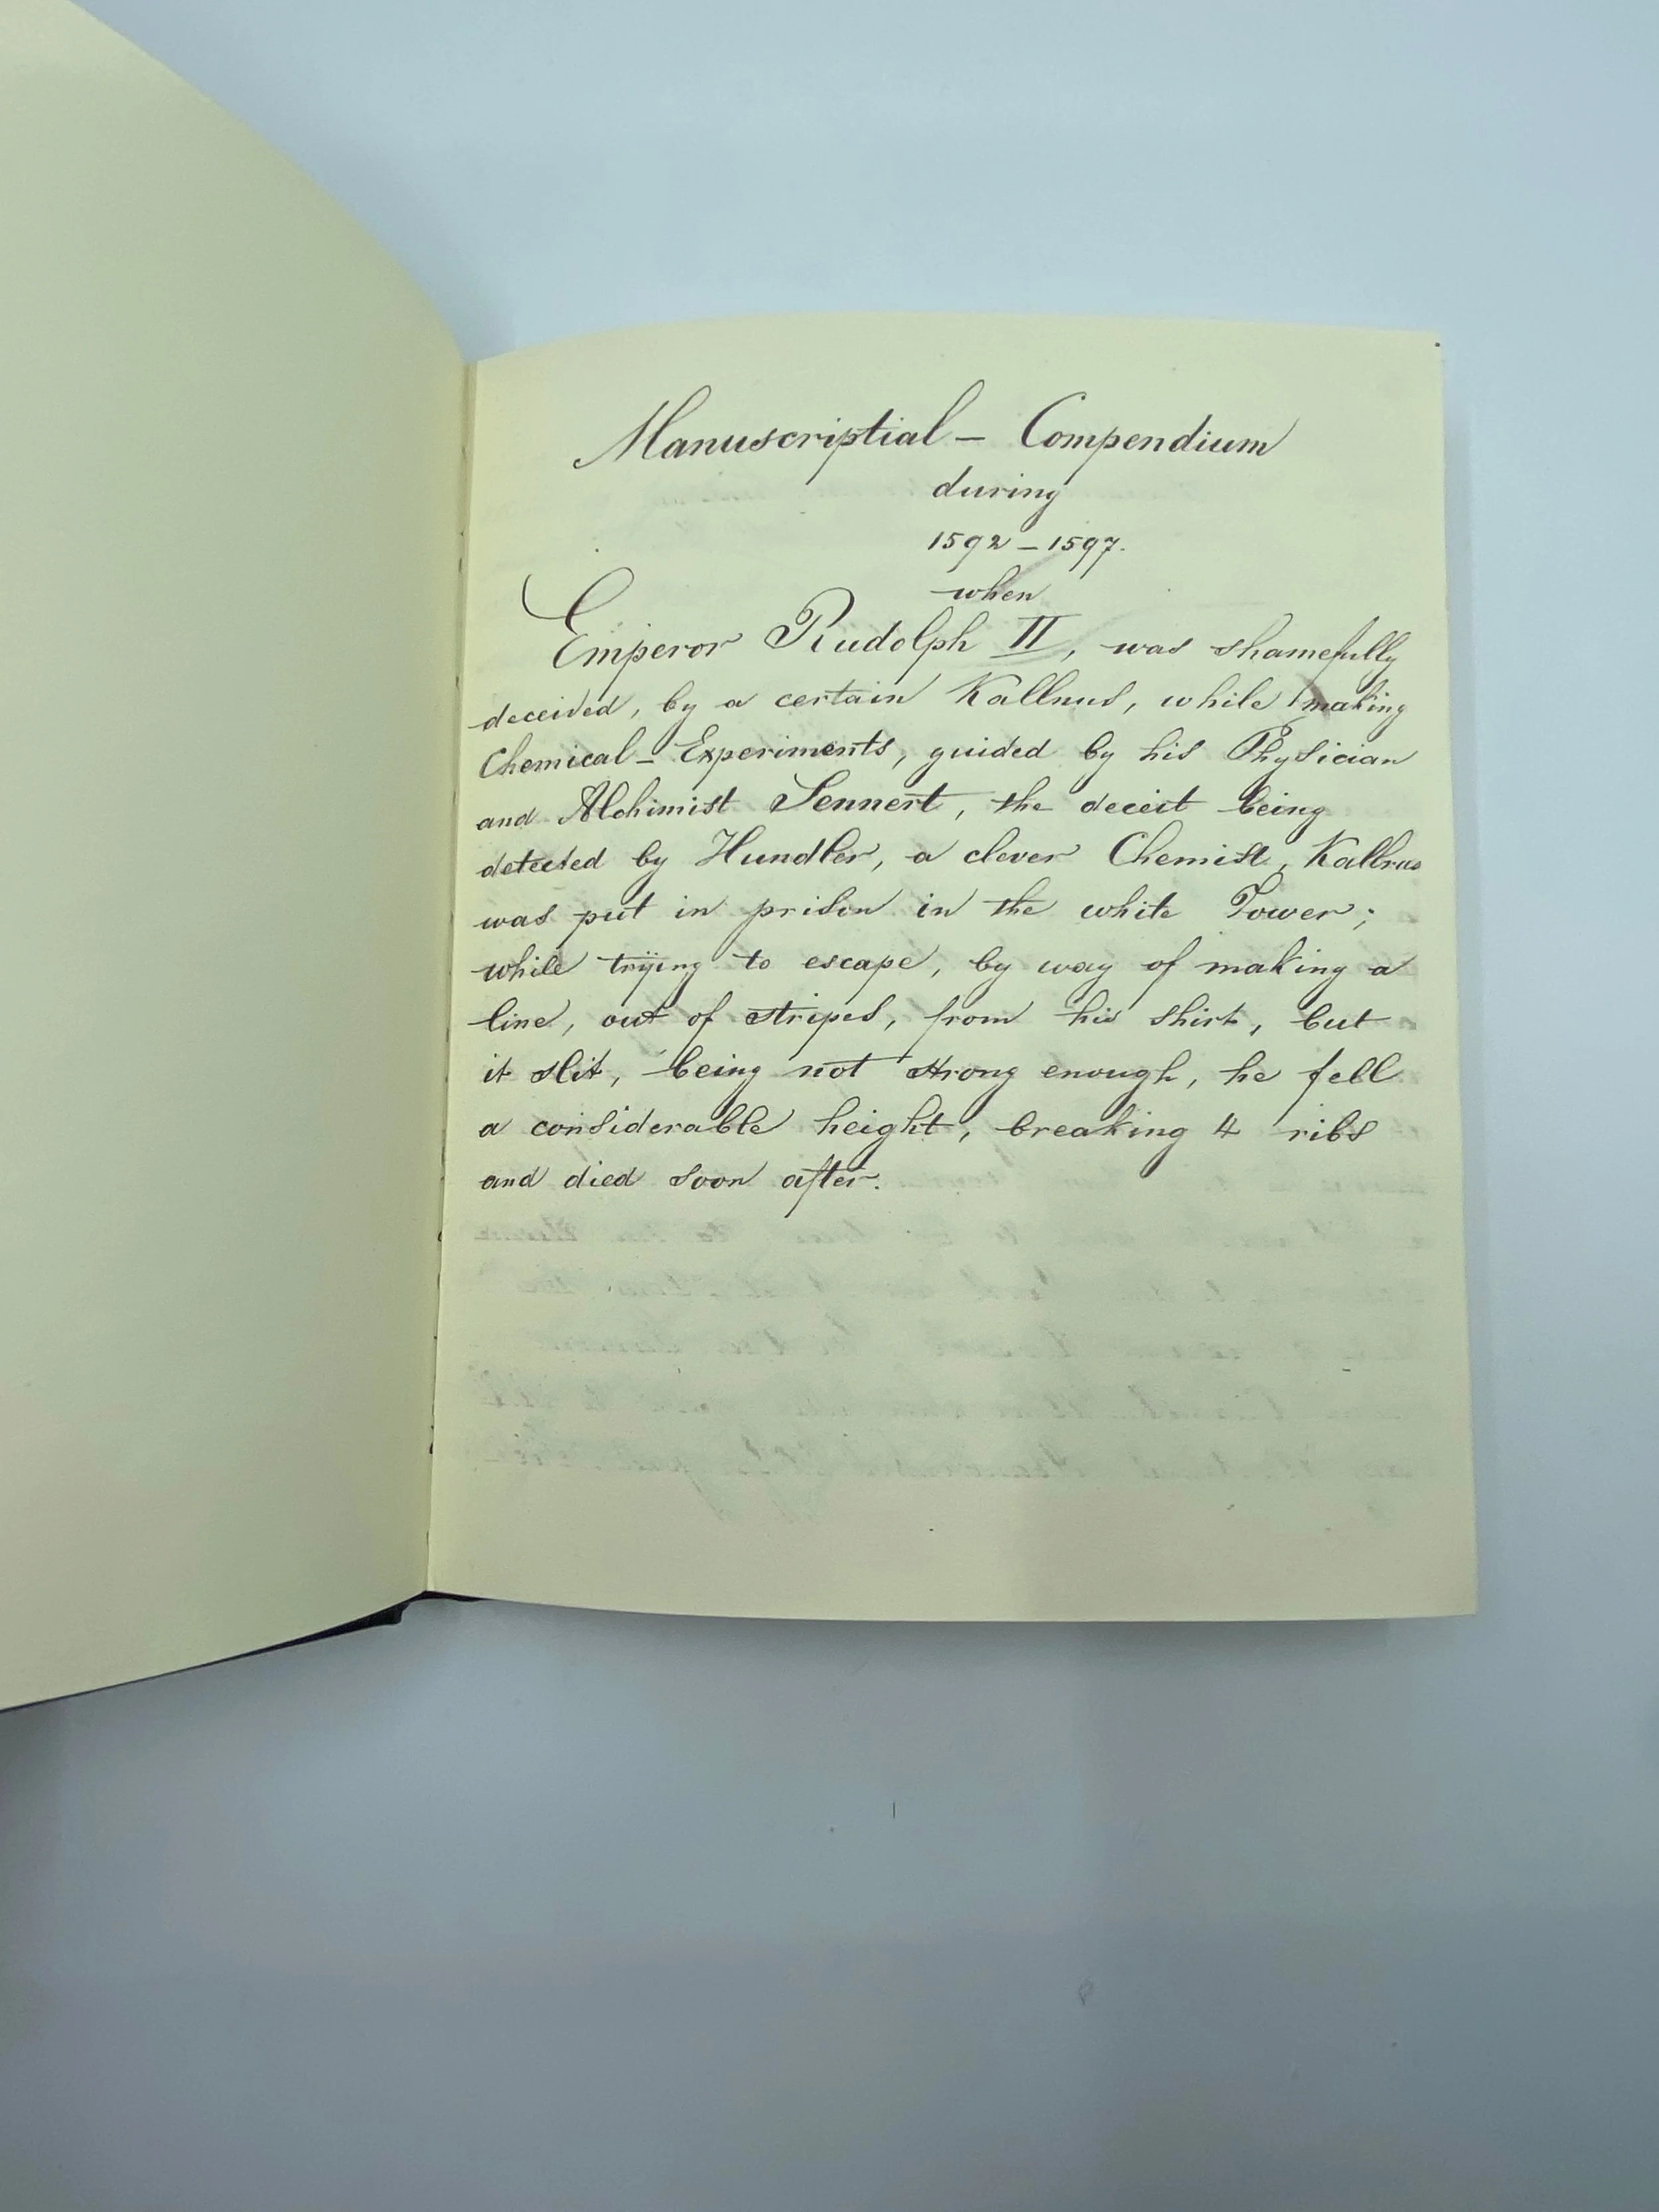 Manuscriptial – Compendium
during
1592 – 1597.
when
Emperor Rudolph II, was shamefully
deceived, by a certain Kallnus, while making
Chemical – Experiments, guided by his Physician
and Alchimist Sennert, the deceit being
detected by Hundler, a clever Chemist, Kallnus
was put in prison in the white Tower;
while trying to escape, by way of making a
line, out of stripes, from his shirt, but
it slit, being not strong enough, he fell
a considerable height, breaking 4 ribs
and died soon after.